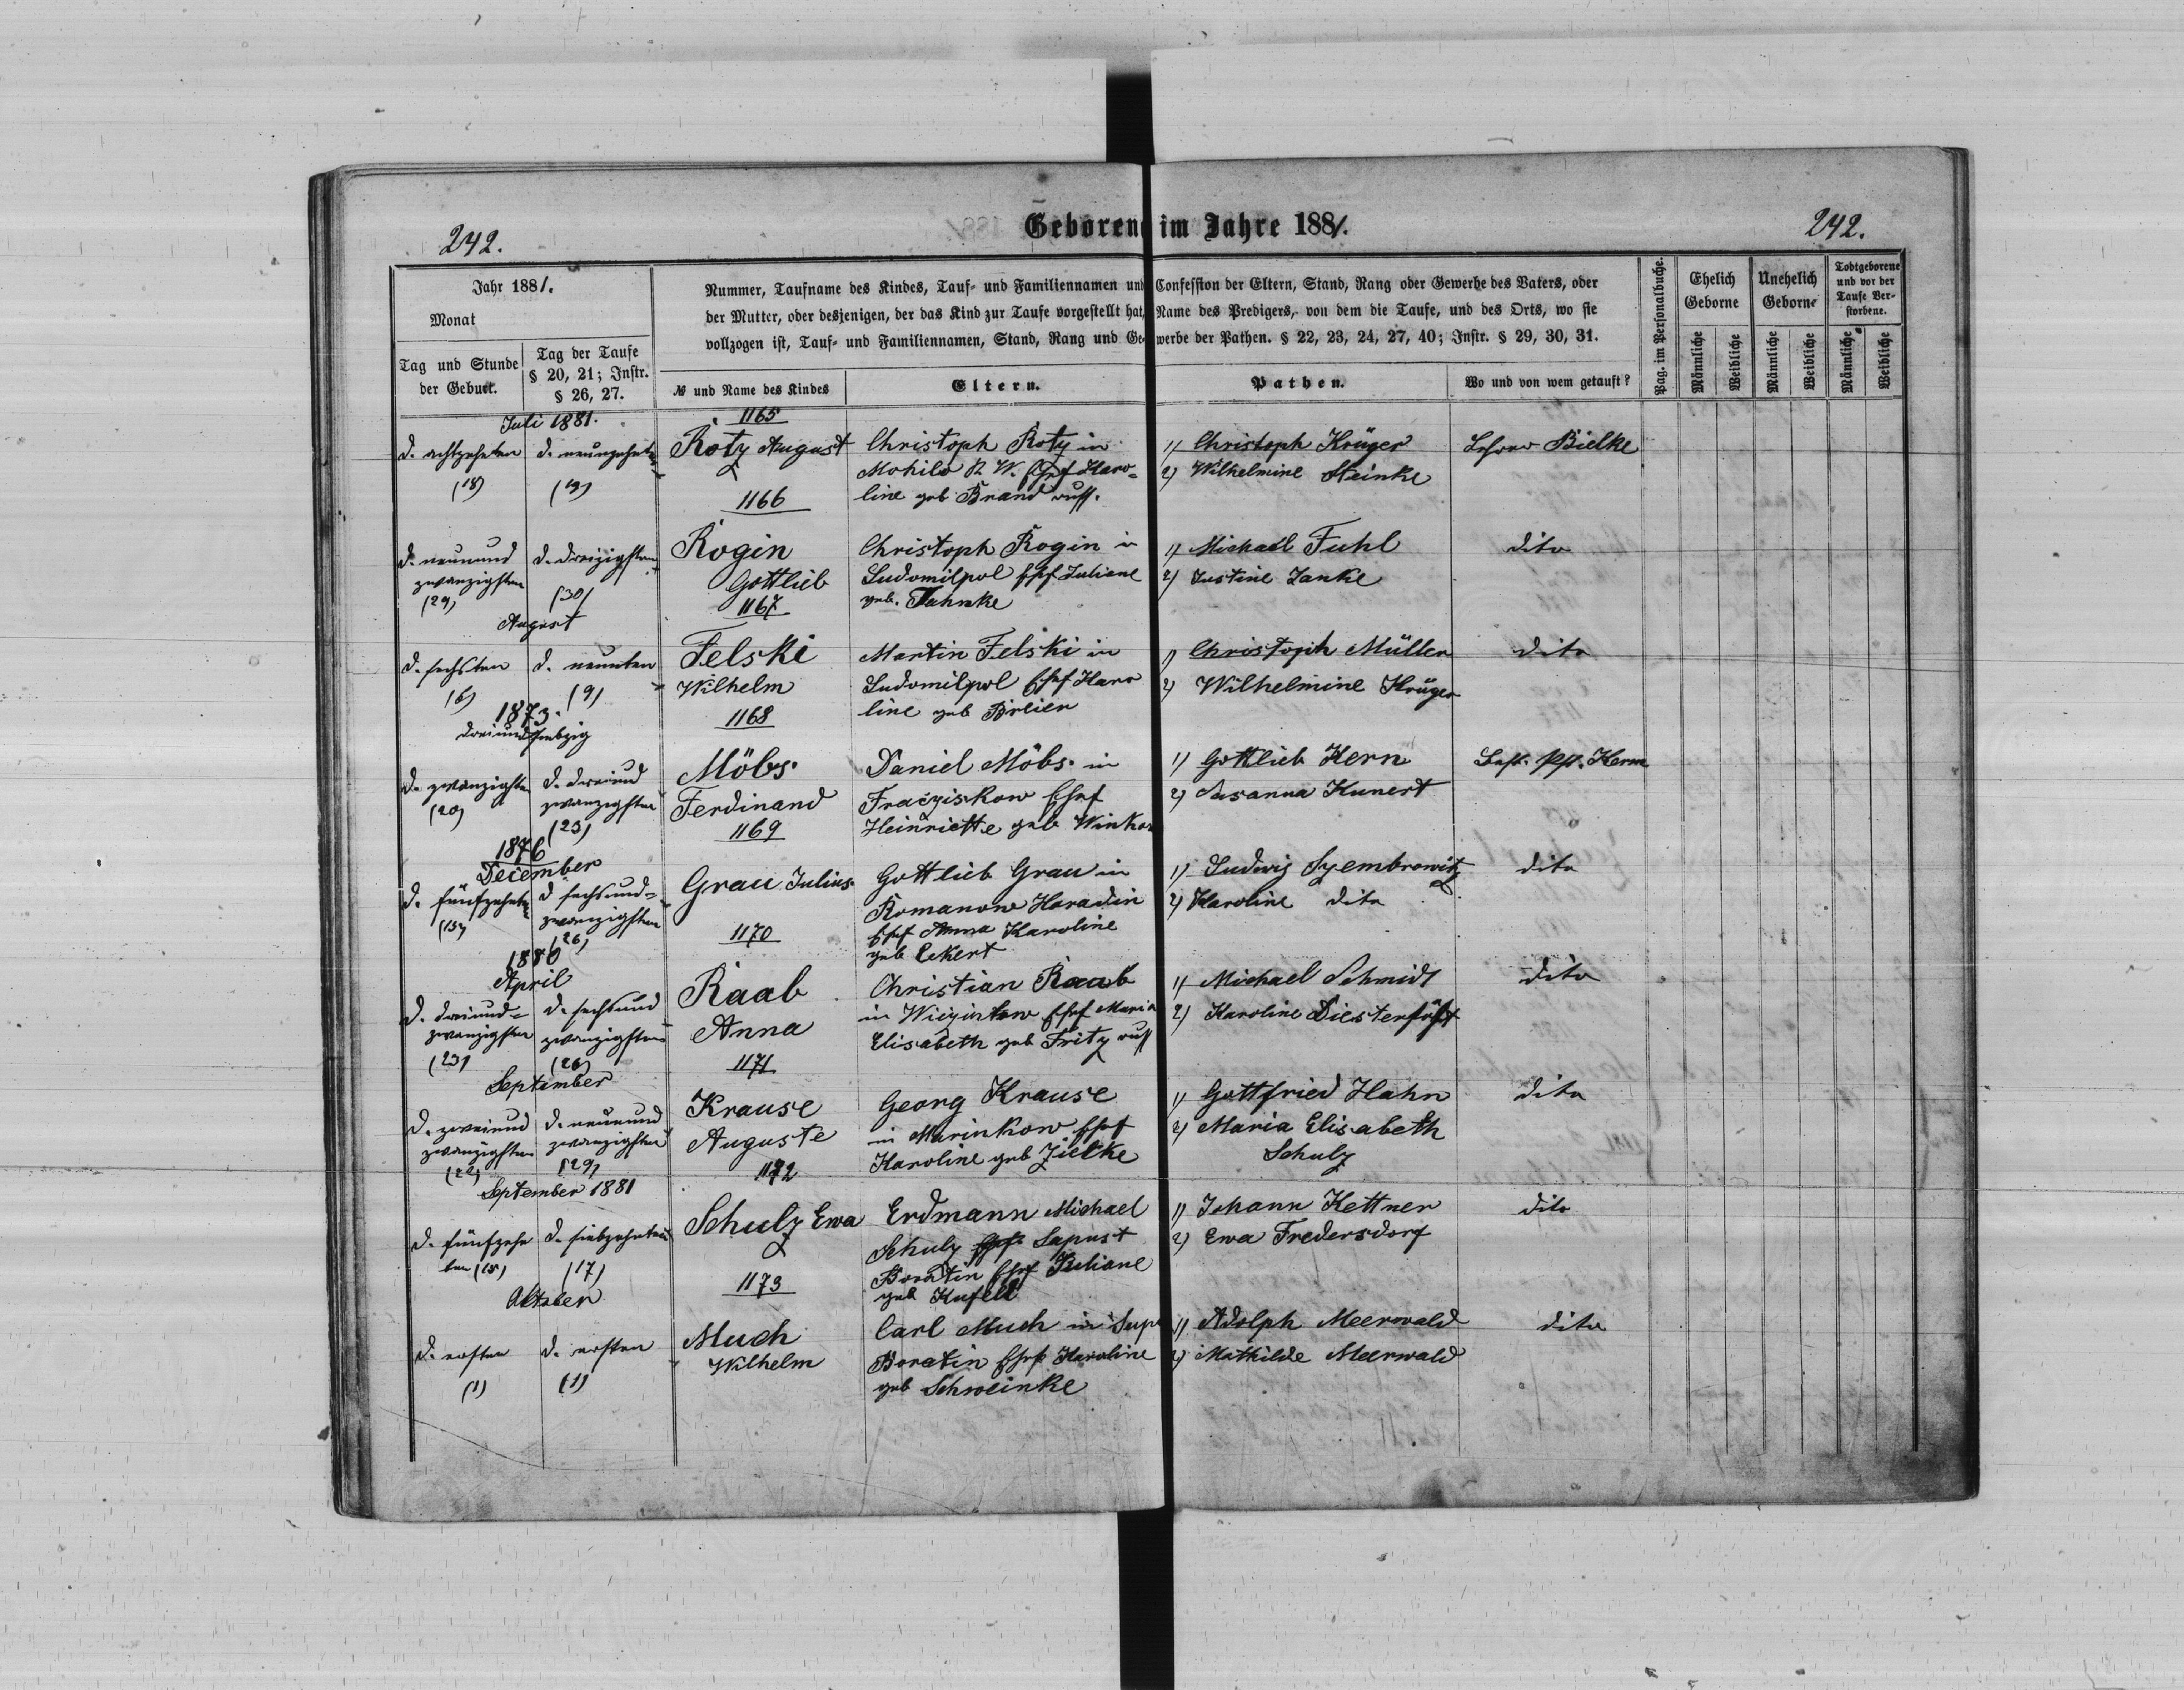 242.
Geborene im Jahre 1881.
242.
Jahr 1881.
Monat
Tag und Stunde
der Geburt.
Tag der Taufe
§ 20, 21; Instr.
§ 26, 27.
Nummer, Taufname des Kindes, Tauf- und Familiennamen und Confession der Eltern, Stand, Rang oder Gewerbe des Vaters, oder
der Mutter, oder desjenigen, der das Kind zur Taufe vorgestellt hat, Name des Predigers, von dem die Taufe, und des Orts, wo sie
vollzogen ist, Tauf- und Familiennamen, Stand, Rang und Gewerbe der Pathen. § 22, 23, 24, 27, 40; Instr. § 29, 30, 31.
№ und Name des Kindes
Eltern.
Pathen.
Wo und von wem getauft?
Pag. im Personalbuche.
Ehelich
Geborne
Unehelich
Geborne
Todtgeborene
und vor der
Taufe Ver-
storbene.
Männliche
Weibliche
Männliche
Weibliche
Männliche
Weibliche
Juli 1881.
d. achtzehnten
(18)
d. neunzehnten
(19)
1165
Rotz August
Christoph Rotz in
Mohila R. W. Ehef Karo-
line geb Brand
1) Christoph Krüger
2) Wilhelmine Steinke
Lehrer Bielke
d. neunund
zwanzigsten
(29)
d. dreizigsten
(30)
1166
Rogin
Gottlieb
Christoph Rogin in
Ludomilpol Ehef Juliane
geb. Jahnke
1) Michael Fuhl
2) Justine Janke
dito
August
d. sechsten
(6)
d. neunten
(9)
1167
Felski
Wilhelm
Martin Felski in
Ludomilpol Ehef Karo
line geb Breier
1) Christoph Müller
2) Wilhelmine Krüger
dito
1873.
dreiundsiebzig
d. zwanzigsten
(20)
d. dreiund
zwanzigsten
(23)
1168
Möbs
Ferdinand
Daniel Möbs in
Fracziskow Ehef
Heinriette geb
1) Gottlieb Kern
2) Susanna Kunert
Kern
1876
December
d. fünfzehnten
(15)
d. sechsund-
zwanzigsten
(26)
1169
Grau Julius
Gottlieb Grau in
Romanow Haradin
Ehef Anna Karoline
geb Eckert
1) Ludwig Szembrowitz
2) Karoline dito
dito
1880
April
d. dreiund-
zwanzigsten
(23)
d. sechsund
zwanzigsten
(26)
1170
Raab
Anna
Christian Raab
in Ehef Maria
Elisabeth geb Fritz
1) Michael Schmidt
2) Karoline
dito
September
d. zweiund
zwanzigsten
(22)
d. neunund
zwanzigsten
(29)
1171
Krause
Auguste
Georg Krause
in Marinkow Ehef
Karoline geb Zielke
1) Gottfried Hahn
2) Maria Elisabeth
Schulz
dito
September 1881
d. fünfzehn
ten (15)
d. siebzehnten
(17)
1172
Schulz Ewa
Erdmann Michael
Schulz Sapust
Boratin Ehef Juliane
geb Kufeld
1) Johann Kettner
2) Ewa Fredersdorf
dito
Oktober
d. ersten
(1)
d. ersten
(1)
1173
Much
Wilhelm
Carl Much in
Boratin Ehef Karoline
geb Schweinke
1) Adolph Meerwald
2) Mathilde Meerwald
dito